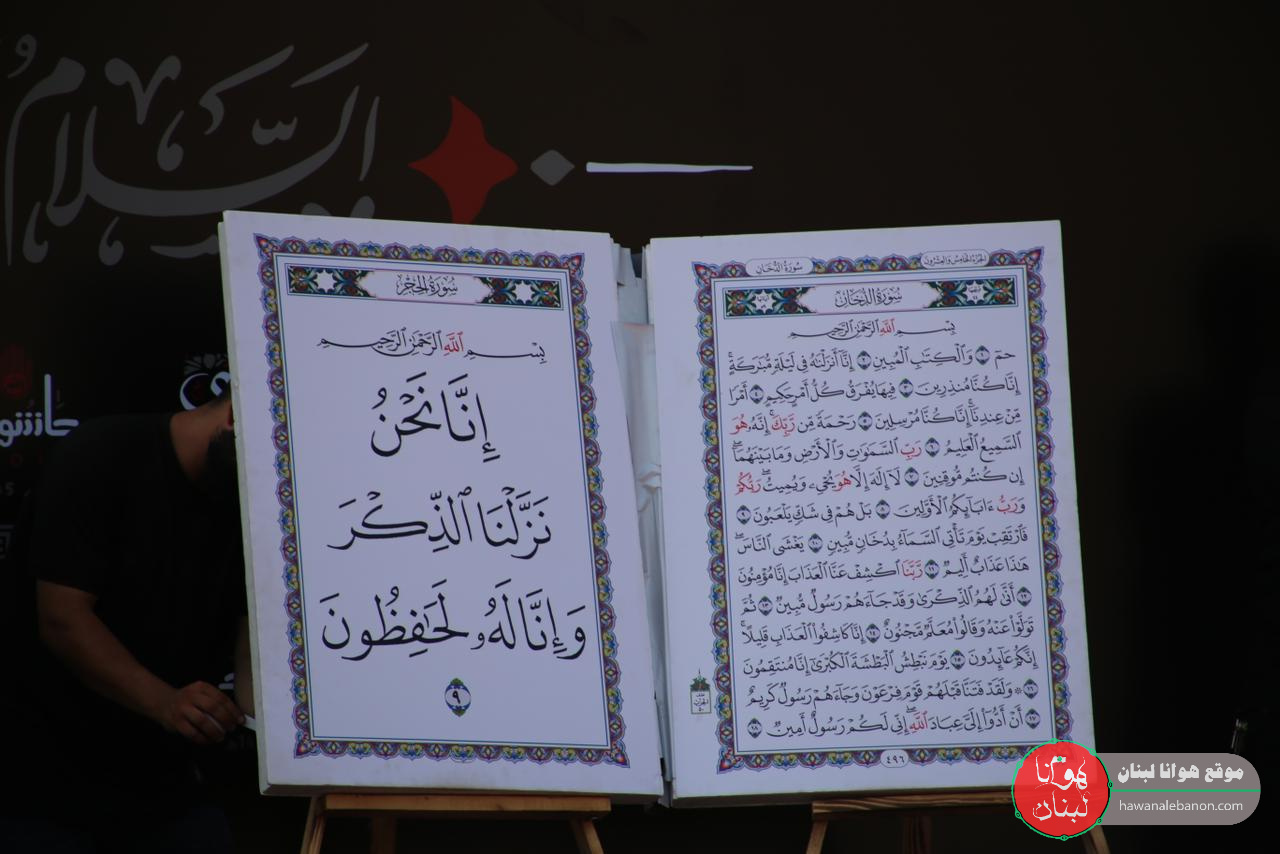 السلام
عاشو
سُورَةُ الحِجْرِ
بِسْمِ ٱللَّهِ ٱلرَّحْمَٰنِ ٱلرَّحِيمِ
إِنَّا نَحْنُ
نَزَّلْنَا ٱلذِّكْرَ
وَإِنَّا لَهُۥ لَحَٰفِظُونَ
٩
سُورَةُ الدُّخَانِ
الجُزْءُ الخَامِسُ وَالعِشْرُونَ
سُورَةُ الدُّخَانِ
بِسْمِ ٱللَّهِ ٱلرَّحْمَٰنِ ٱلرَّحِيمِ
حمٓ ١ وَٱلْكِتَٰبِ ٱلْمُبِينِ ٢ إِنَّآ أَنزَلْنَٰهُ فِى لَيْلَةٍ مُّبَٰرَكَةٍ ۚ
إِنَّا كُنَّا مُنذِرِينَ ٣ فِيهَا يُفْرَقُ كُلُّ أَمْرٍ حَكِيمٍ ٤ أَمْرًا
مِّنْ عِندِنَآ ۚ إِنَّا كُنَّا مُرْسِلِينَ ٥ رَحْمَةً مِّن رَّبِّكَ ۚ إِنَّهُۥ هُوَ
ٱلسَّمِيعُ ٱلْعَلِيمُ ٦ رَبِّ ٱلسَّمَٰوَٰتِ وَٱلْأَرْضِ وَمَا بَيْنَهُمَآ ۖ
إِن كُنتُم مُّوقِنِينَ ٧ لَآ إِلَٰهَ إِلَّا هُوَ يُحْىِۦ وَيُمِيتُ ۖ رَبُّكُمْ
وَرَبُّ ءَابَآئِكُمُ ٱلْأَوَّلِينَ ٨ بَلْ هُمْ فِى شَكٍّ يَلْعَبُونَ ٩
فَٱرْتَقِبْ يَوْمَ تَأْتِى ٱلسَّمَآءُ بِدُخَانٍ مُّبِينٍ ١٠ يَغْشَى ٱلنَّاسَ ۖ
هَٰذَا عَذَابٌ أَلِيمٌ ١١ رَّبَّنَا ٱكْشِفْ عَنَّا ٱلْعَذَابَ إِنَّا مُؤْمِنُونَ
١٢ أَنَّىٰ لَهُمُ ٱلذِّكْرَىٰ وَقَدْ جَآءَهُمْ رَسُولٌ مُّبِينٌ ١٣ ثُمَّ
تَوَلَّوْا۟ عَنْهُ وَقَالُوا۟ مُعَلَّمٌ مَّجْنُونٌ ١٤ إِنَّا كَاشِفُوا۟ ٱلْعَذَابِ قَلِيلًا ۚ
إِنَّكُمْ عَآئِدُونَ ١٥ يَوْمَ نَبْطِشُ ٱلْبَطْشَةَ ٱلْكُبْرَىٰٓ إِنَّا مُنتَقِمُونَ
١٦ ۞ وَلَقَدْ فَتَنَّا قَبْلَهُمْ قَوْمَ فِرْعَوْنَ وَجَآءَهُمْ رَسُولٌ كَرِيمٌ
١٧ أَنْ أَدُّوٓا۟ إِلَىَّ عِبَادَ ٱللَّهِ ۖ إِنِّى لَكُمْ رَسُولٌ أَمِينٌ ١٨
٤٩٦
هوانا لبنان
موقع هوانا لبنان
hawanalebanon.com